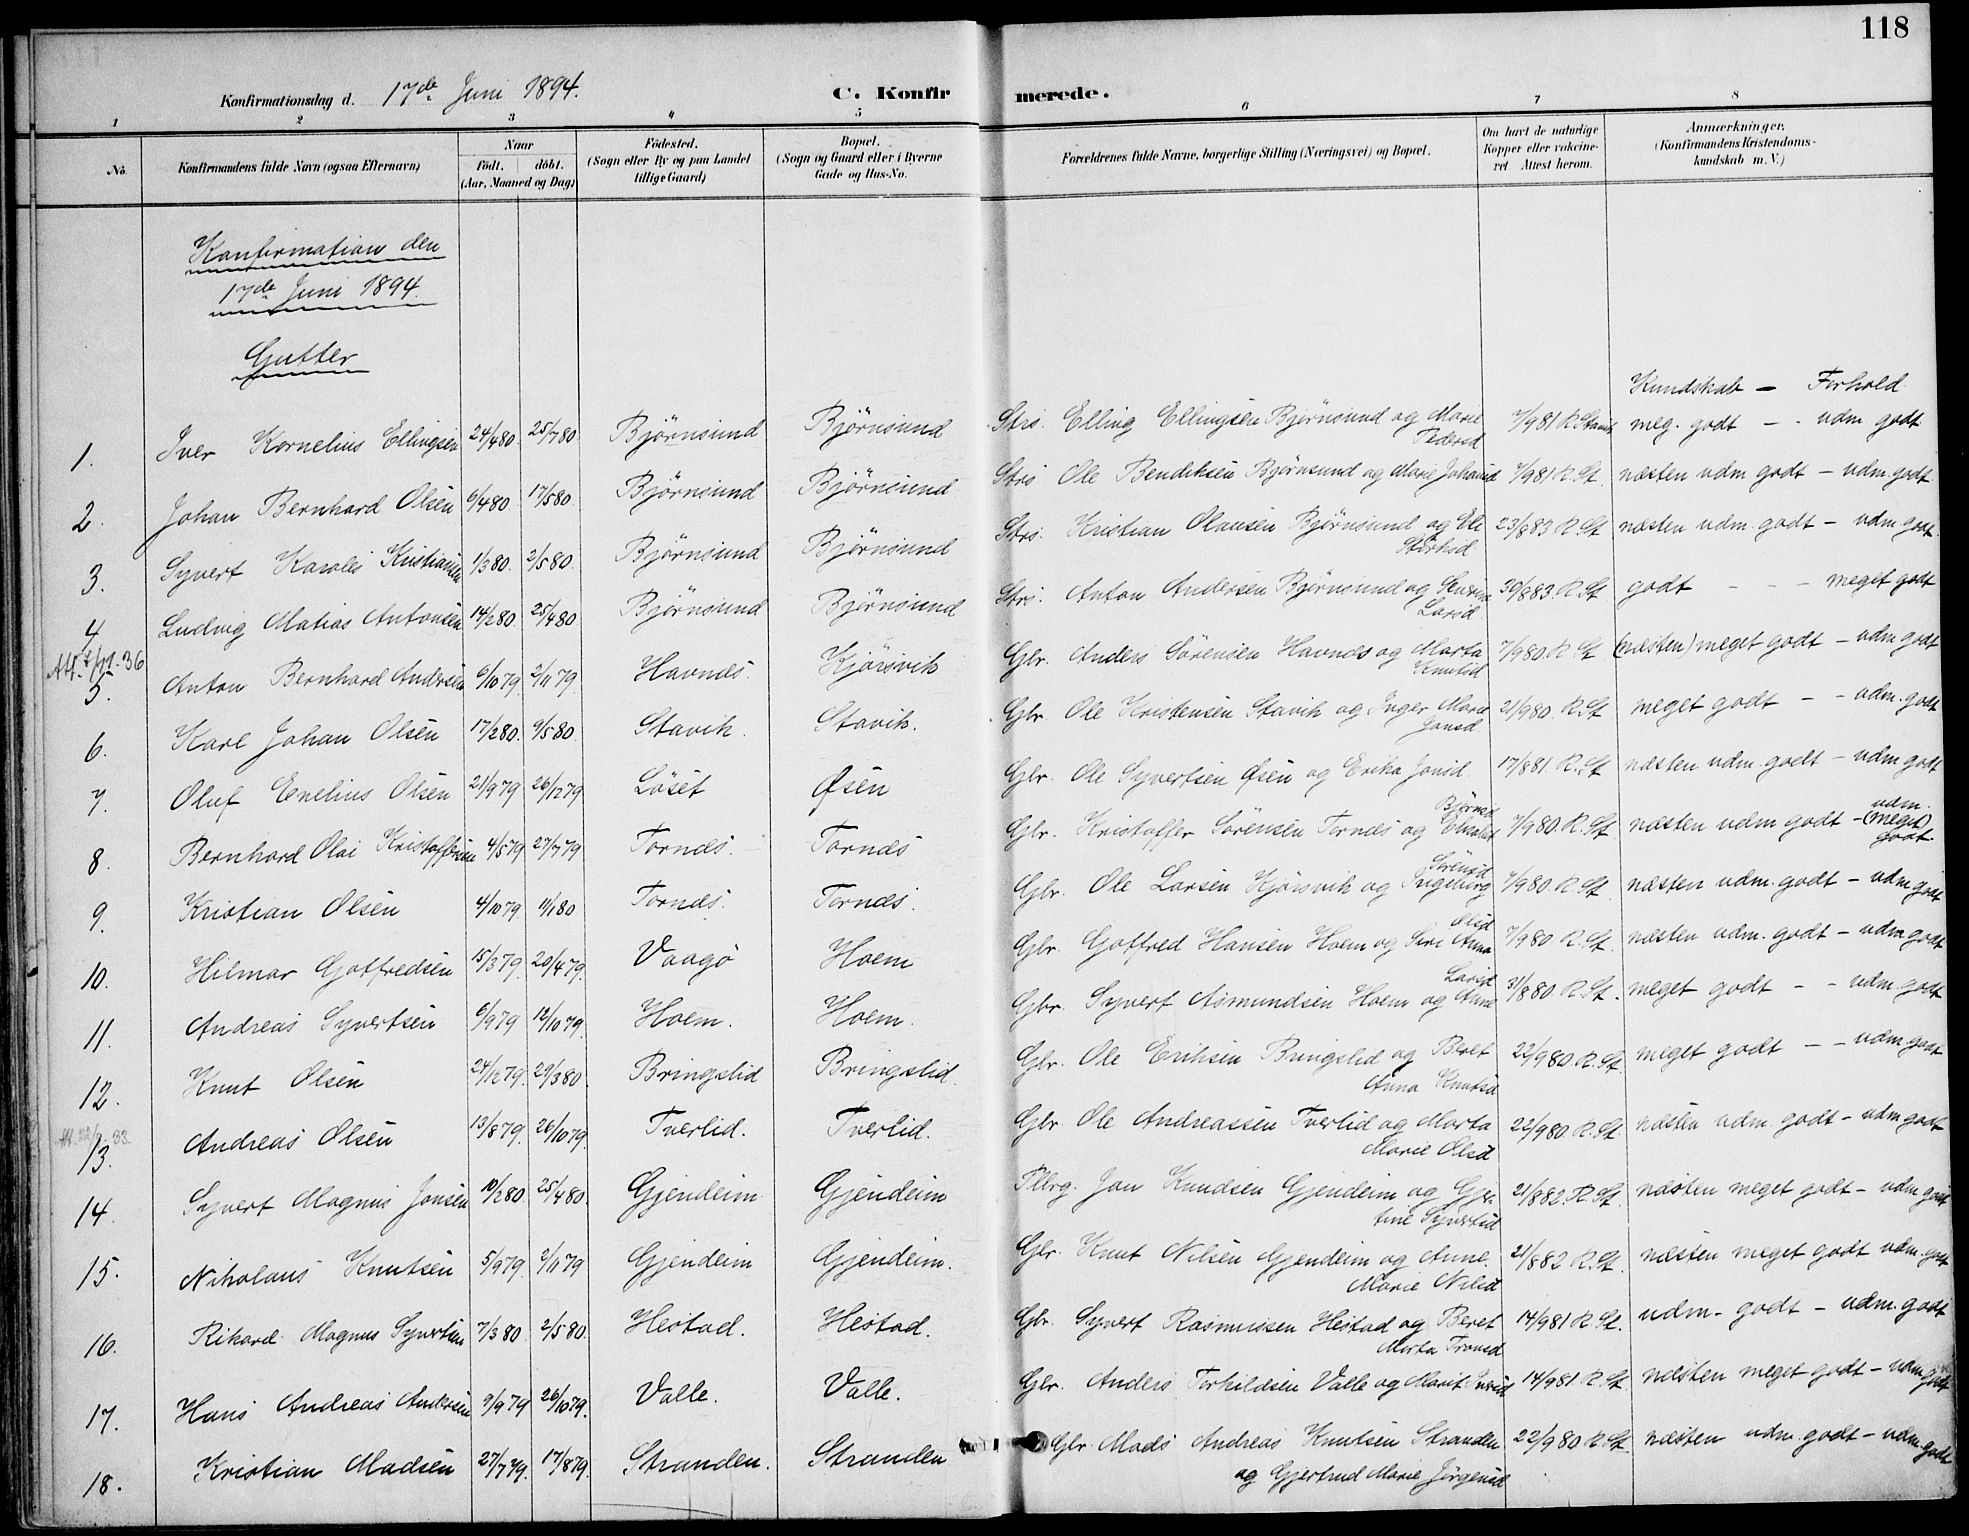 118
Konfirmationsdag d. 17de Juni 1894. C. Konfirmerede.
1 2 3 4 5 6 7 8
No. Konfirmandens fulde Navn (ogsaa Efternavn) Naar født. døbt. (Aar, Maaned og Dag) Fødested. (Sogn eller By og paa Landet tillige Gaard) Bopæl. (Sogn og Gaard eller i Byerne Gade og Hus-No. Forældrenes fulde Navne, borgerlige Stilling (Næringsvei) og Bopæl. Om havt de naturlige Kopper eller vakcineret. Attest herom. Anmærkninger. (Konfirmandens Kristendomskundskab m. V.)
Konfirmation den
17de Juni 1894.
Gutter
Kundskab — Forhold
1. Iver Kornelius Ellingsen 24/480. 25/780. Bjørnsund Bjørnsund Strs. Elling Ellingsen Bjørnsund og Marie Pedersd 7/981 R. meg. godt — udm godt
2. Johan Bernhard Olsen 6/480. 17/580. Bjørnsund Bjørnsund Strs Ole Bendiksen Bjørnsund og Marie Johansd 7/981 R. St. næsten udm godt — udm. godt
3. Syvert Karolis Kristiansen 1/380. 2/580. Bjørnsund Bjørnsund Strs. Kristian Olausen Bjørnsund og 23/883 R. St næsten udm. godt — udm godt
4 Ludvig Matias Antonsen 14/280. 25/480 Bjørnsund Bjørnsund Strs. Anton Andersen Bjørnsund og Larsd 30/883. R. St godt — meget godt
36
5. Anton Bernhard Andersen 6/1079. 2/1179. Havnes. Kjørsvik Gbr. Anders Sørensen Havnes og Marta Knutsd 7/980. R. St (næsten) meget godt — udm godt
6. Karl Johan Olsen 17/280. 9/580 Stavik. Stavik. Gbr. Ole Kristensen Stavik og Inger Marie Jonsd 21/980. R. St meget godt — udm. godt
7. Oluf Enelius Olsen 21/979 26/1279 Løset Øsen Gbr. Ole Syvertsen Øsen og Erika Jonsd. 17/881. R. St næsten udm. godt — udm godt
8. Bernhard Olai Kristoffersen 4/579 27/779 Tornes. Tornes Gbr. Kristoffer Sørensen Tornes og Elisabet Bjørnsd 7/980. R. St. næsten udm godt — udm. (meget) godt.
9. Kristian Olsen 4/1079 11/180 Tornes. Tornes. Gbr. Ole Larsen Kjørsvik og Ingeborg Sørensd 7/980. R. St. næsten udm. godt — udm godt
10. Hilmar Gotfredsen 15/379. 20/479. Vaagø Hoem Gbr. Gotfred Hansen Hoem og Siri Anna Olsd 7/980 R. St. næsten udm. godt — udm godt
11. Andreas Syvertsen 6/979 12/1079. Hoem. Hoem. Gbr. Syvert Asmundsen Hoem og Anne Larsd 31/880 R. St. meget godt — udm. godt
12. Knut Olsen 24/1279. 29/380. Bringslid Bringslid. Gbr. Ole Eriksen Bringslid og Beret Anna Knutsd 22/980 R. St. meget godt — udm. godt
33
13. Andreas Olsen 13/879. 26/1079. Tverlid. Tverlid. Gbr. Ole Andreassen Tverlid og Marta Marie Olsd 22/980. R. St. næsten udm. godt — udm godt
14. Syvert Magnus Jonsen 10/280. 25/480. Gjendeim Gjendeim Jon Knudsen Gjendeim og Gjertine Syvertsd 21/882. R. St. næsten meget godt — udm godt
15. Nikolaus Knutsen 5/979. 2/1179 Gjendeim Gjendeim. Gbr. Knut Nilsen Gjendeim og Anne Marie Nilsd 21/882 R. St. næsten meget godt udm. godt
16. Rikard Magnus Syvertsen 7/380 2/580. Hestad. Hestad. Gbr. Syvert Rasmussen Hestad og Beret Marta Tronsd 14/981 R. St. udm. godt — udm. godt
17. Hans Andreas Andersen 9/979 26/1079. Valle. Valle. Gbr. Anders Torkildsen Valle og Marit 14/981 R. St. næsten meget godt — udm godt
18. Kristian Madsen 27/779. 17/879. Stranden. Stranden Gbr. Mads Andreas Knutsen Stranden og Gjertrud Marie Jørgensd 22/980 R. St. næsten udm. godt — udm godt